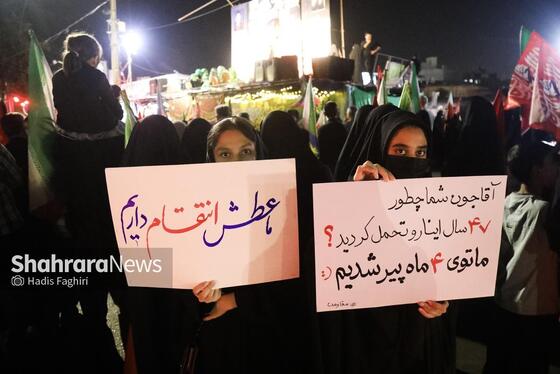 ما عطش انتقام داریم
آقاجون شما چطور
۴۷ سال اینارو تحمل کردید؟
ما توی ۴ ماه پیر شدیم :)
ShahraraNews
Hadis Faghiri